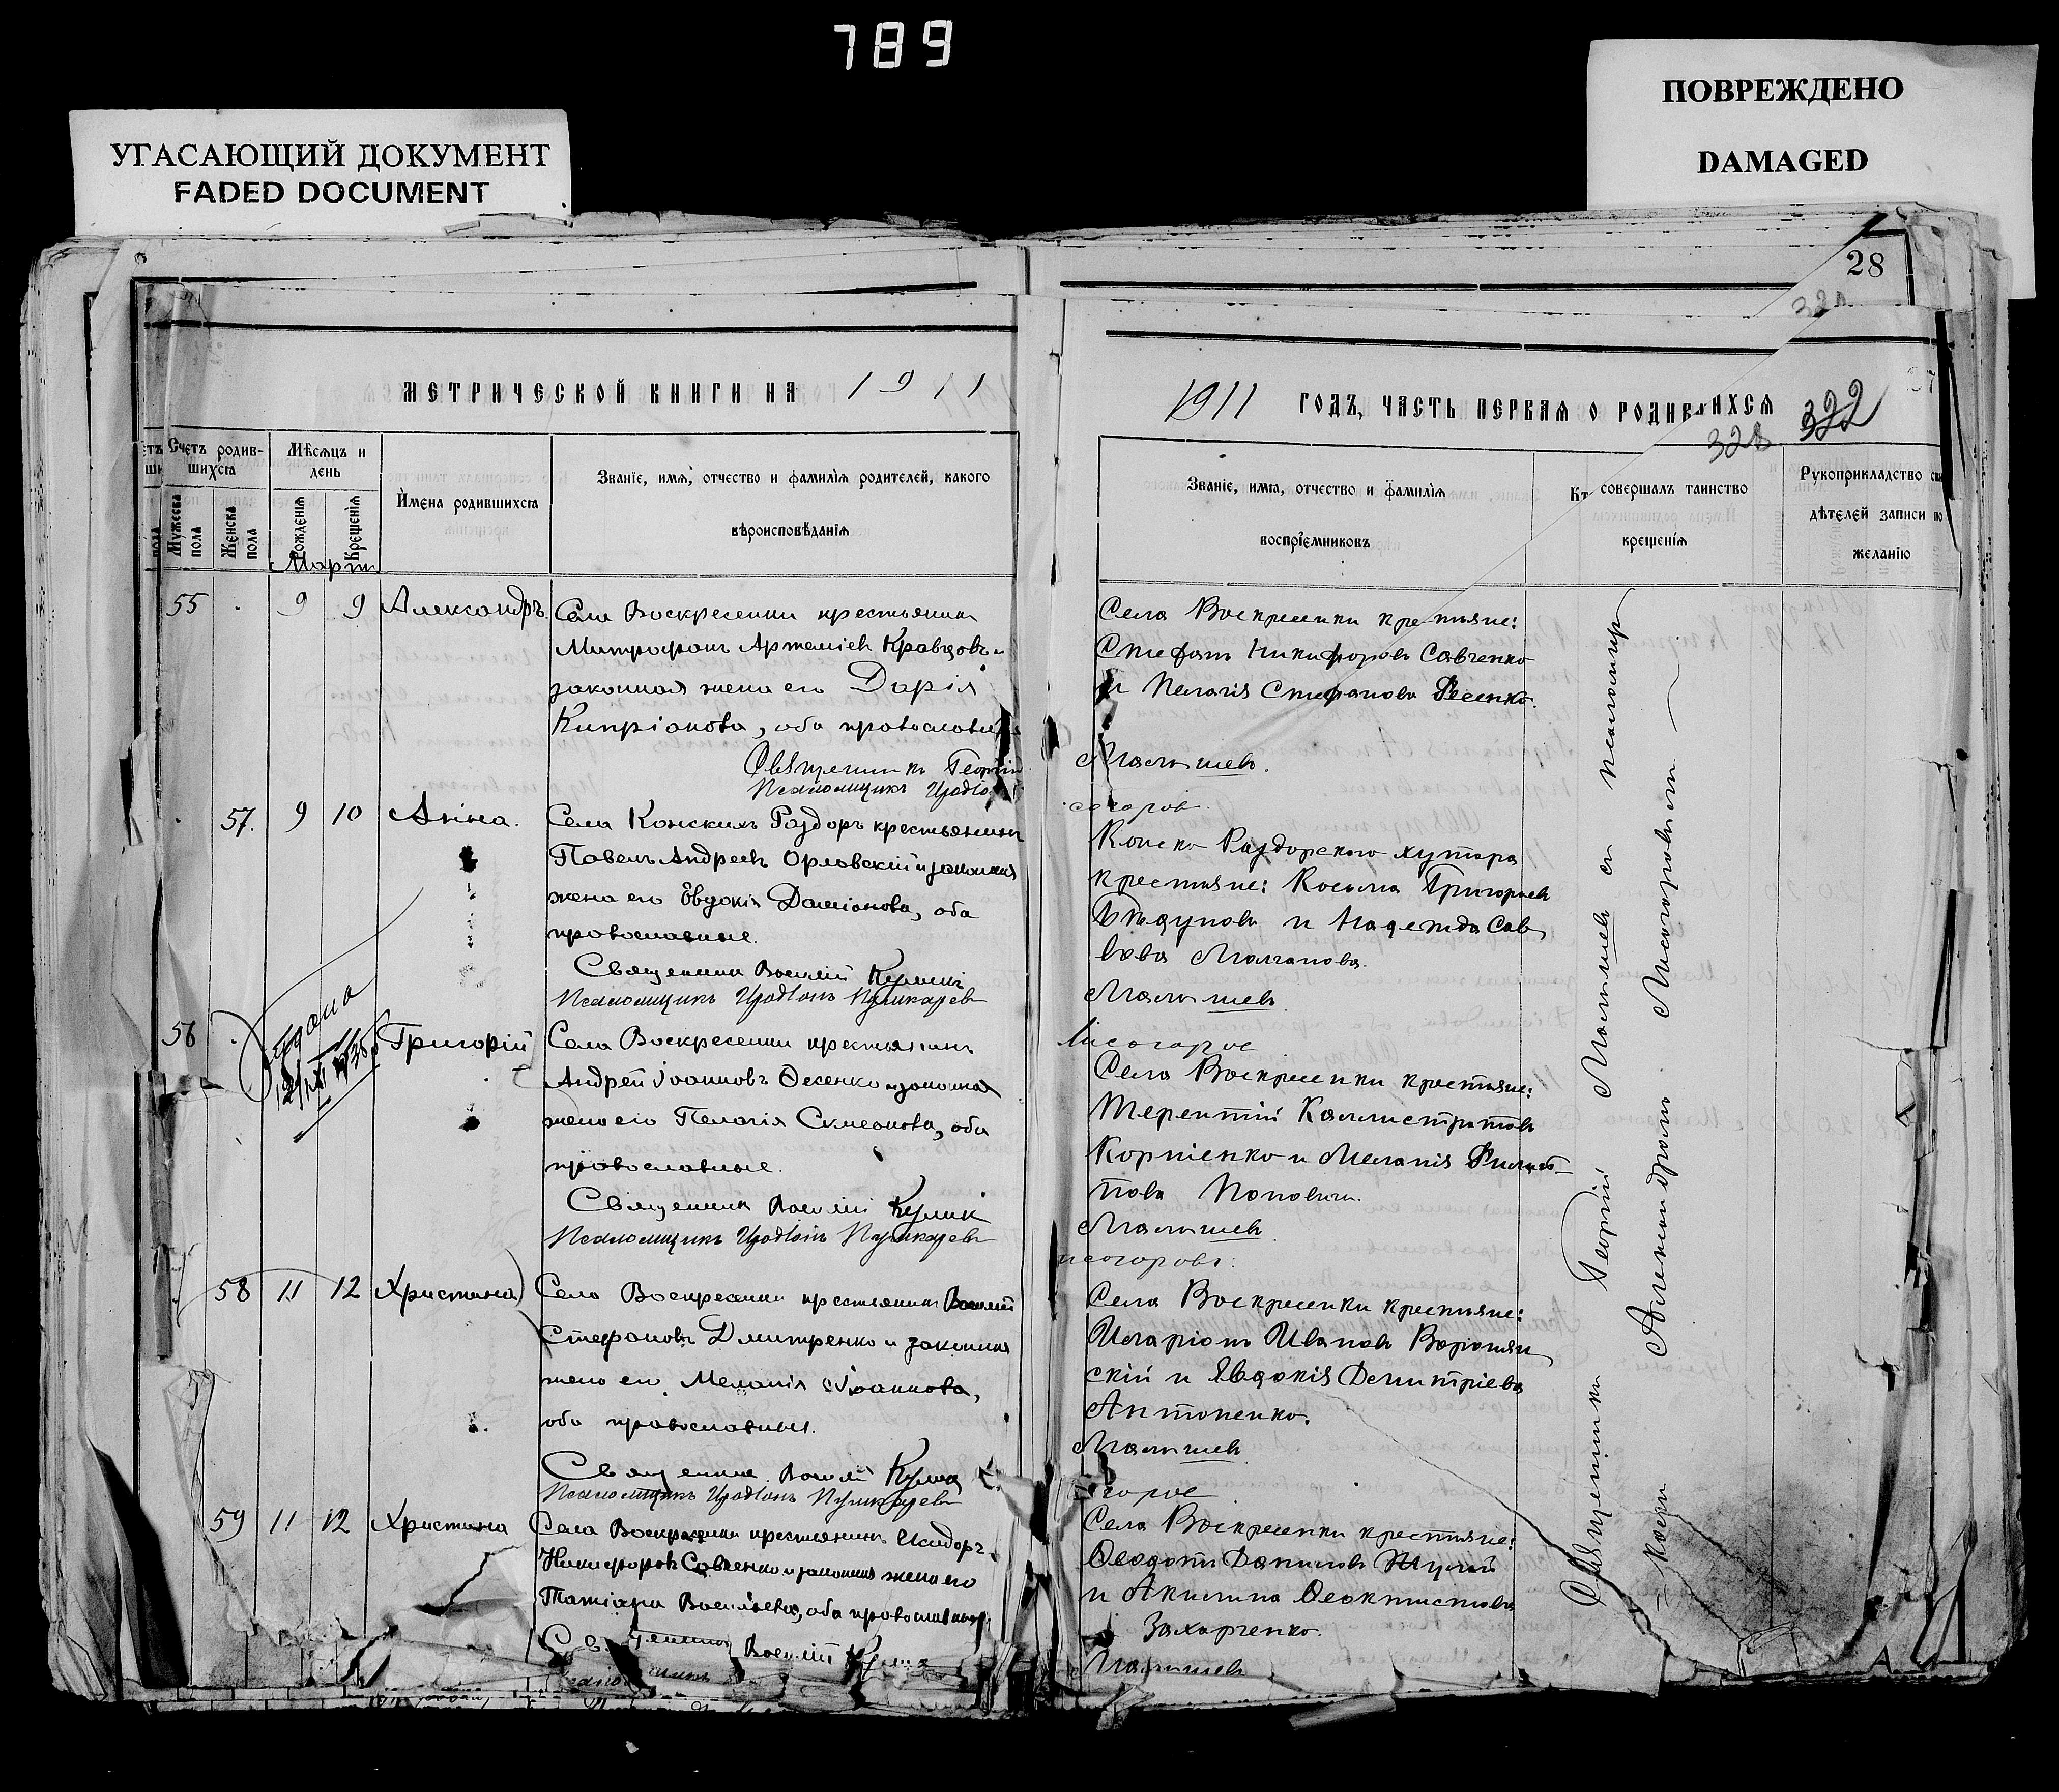 789
УГАСАЮЩИЙ ДОКУМЕНТ
FADED DOCUMENT
ПОВРЕЖДЕНО
DAMAGED
28
МЕТРИЧЕСКОЙ КНИГИ НА 1911
Счетъ родив-
шихся
Мужеска пола
Женска пола
Мѣсяцъ и
день
Рожденія
Крещенія
Имена родившихся
Званіе, имя, отчество и фамилія родителей, какого
вѣроисповѣданія
Мартъ
55 9 9 Александръ
Села Воскресенки крестьянинъ
Митрофанъ Артеміевъ Кравцовъ и
законная жена его Дарія
Кипріанова, оба православные
Священникъ Георгій
Псаломщикъ Иродіонъ
57. 9 10 Анна.
Села Конскихъ Раздоръ крестьянинъ
Павелъ Андреевъ Орловскій и законная
жена его Евдокія Даміанова, оба
православные.
Священникъ Василій Куликъ
Псаломщикъ Иродіонъ Пушкаревъ
56 Григорій
Села Воскресенки крестьянинъ
Андрей Іоанновъ Фесенко и законная
жена его Пелагія Симеонова, оба
православные.
Священникъ Василій Кулик
Псаломщикъ Иродіонъ Пушкаревъ
58 11 12 Христина
Села Воскресенки крестьянинъ Василій
Стефановъ Дмитренко и законная
жена его Меланія Іоаннова,
оба православные.
Священникъ Василій Кулик
Псаломщикъ Иродіонъ Пушкаревъ
59 11 12 Христина
Села Воскресенки крестьянинъ Исидоръ
Никифоровъ Савченко и законная жена его
Татіана Васильева, оба православные.
Священникъ Василій Кулик
1911 ГОДЪ, ЧАСТЬ ПЕРВАЯ О РОДИВШИХСЯ
322
328
Званіе, имя, отчество и фамилія
воспріемниковъ
совершалъ таинство
крещенія
Рукоприкладство
дѣтелей записи по
желанію
Села Воскресенки крестьяне:
Стефанъ Никифоровъ Савченко
и Пелагія Стефанова Фесенко.
Малышевъ.
Конско Раздорскаго хутора
крестьяне: Косьма Григорьевъ
Бѣдуновъ и Надежда Сав
вова Молчанова.
Малышевъ
Лисогоров
Села Воскресенки крестьяне:
Терентій Каллистратовъ
Корніенко и Меланія Филип-
пова Поповичъ.
Малышевъ
Села Воскресенки крестьяне:
Иларіонъ Ивановъ Варіонян
скій и Евдокія Димитріева
Антоненко.
Малышевъ
Села Воскресенки крестьяне:
Ѳеодотъ Даниловъ
и Акилина Ѳеоктистова
Захарченко.
Малышевъ
Священникъ Георгій Малышевъ съ псаломщи
комъ Александромъ Лисогоровымъ.